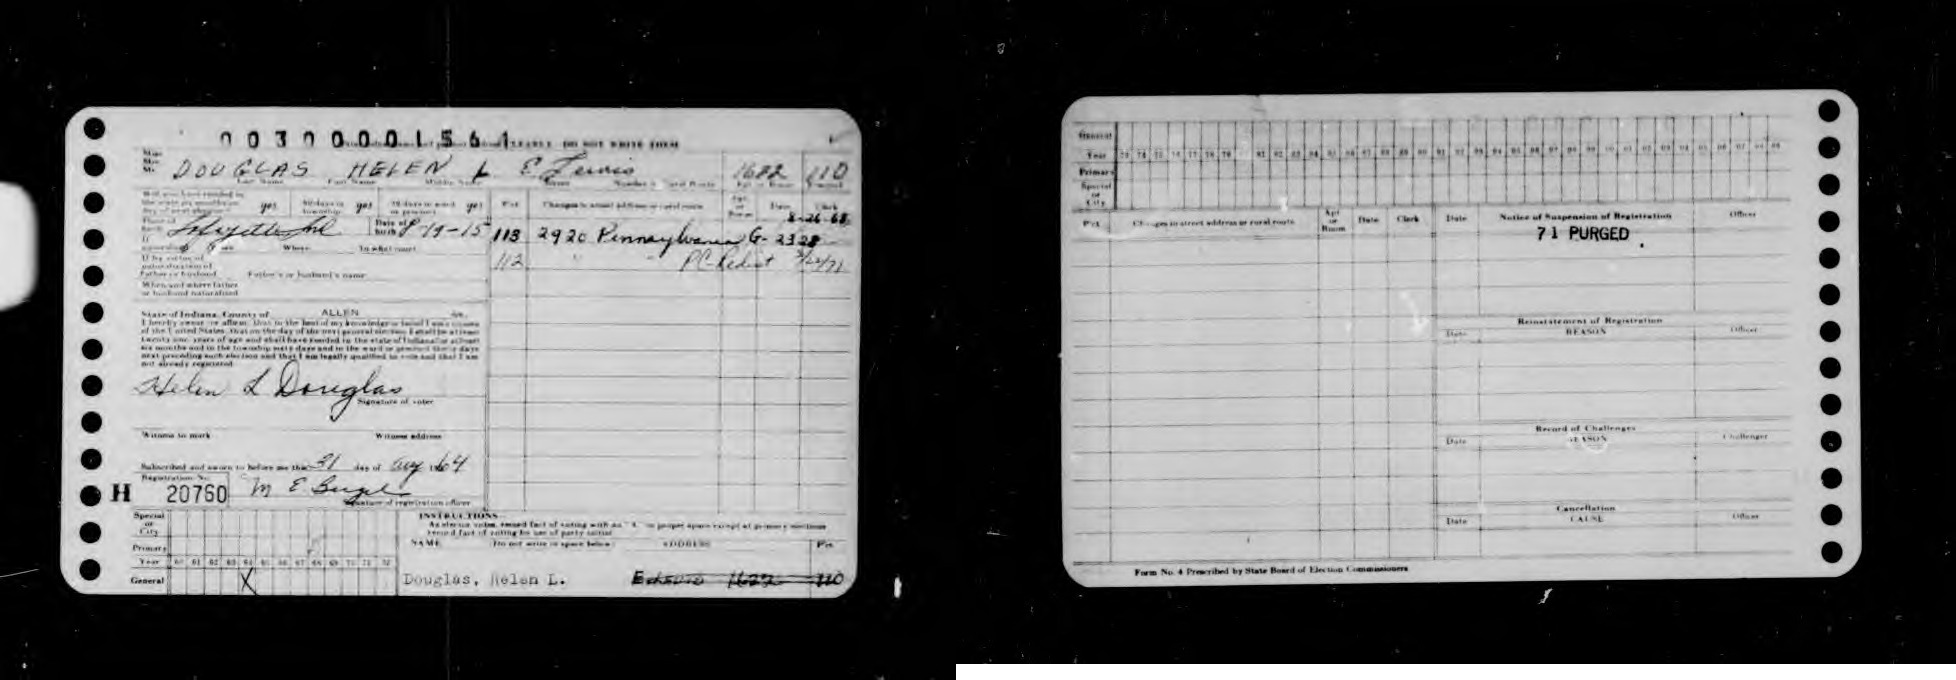 0030000156 CLEARLY DO NOT WRITE FIRM
Miss
Mrs.
Mr. DOUGLAS HELEN L E. Lewis 1622 110
Last Name First Name Middle Name Street Number or Rural Route Apt. or Room Precinct
yes yes yes
Pct. Changes in street address or rural route Apt. or Room Date Clerk
8-26-68
Place of birth Lafayette Ind Date of birth 8-19-15
113 2920 Pennsylvania G-2328
112 " " PC-Redist
If by virtue of naturalization of Father or husband Father's or husband's name
When and where father or husband naturalized
State of Indiana, County of ALLEN ss.
I hereby swear or affirm, that to the best of my knowledge or belief I am a citizen
of the United States, that on the day of the next general election I shall be at least
twenty one years of age and shall have resided in the state of Indiana for at least
six months and in the township sixty days and in the ward or precinct thirty days
next preceding such election and that I am legally qualified to vote and that I am
not already registered.
Helen L Douglas
Signature of voter
Witness to mark Witness address
Subscribed and sworn to before me this 31 day of Aug 1964
Registration No.
H 20760 M E
Signature of registration officer
Special or City
Primary
Year 60 61 62 63 64 65 66 67 68 69 70 71 72
General X
INSTRUCTIONS
As elector votes, record fact of voting with an "X" in proper space except at primary elections
record fact of voting by use of party initial
NAME (Do not write in space below) ADDRESS Pct.
Douglas, Helen L. 1622 110
General
Year
Primary
Special or City
Pct. Changes in street address or rural route Apt. or Room Date Clerk
Date Notice of Suspension of Registration Officer
71 PURGED
Reinstatement of Registration
Date REASON Officer
Record of Challenges
Date REASON Challenger
Cancellation
Date CAUSE Officer
Form No. 4 Prescribed by State Board of Election Commissioners